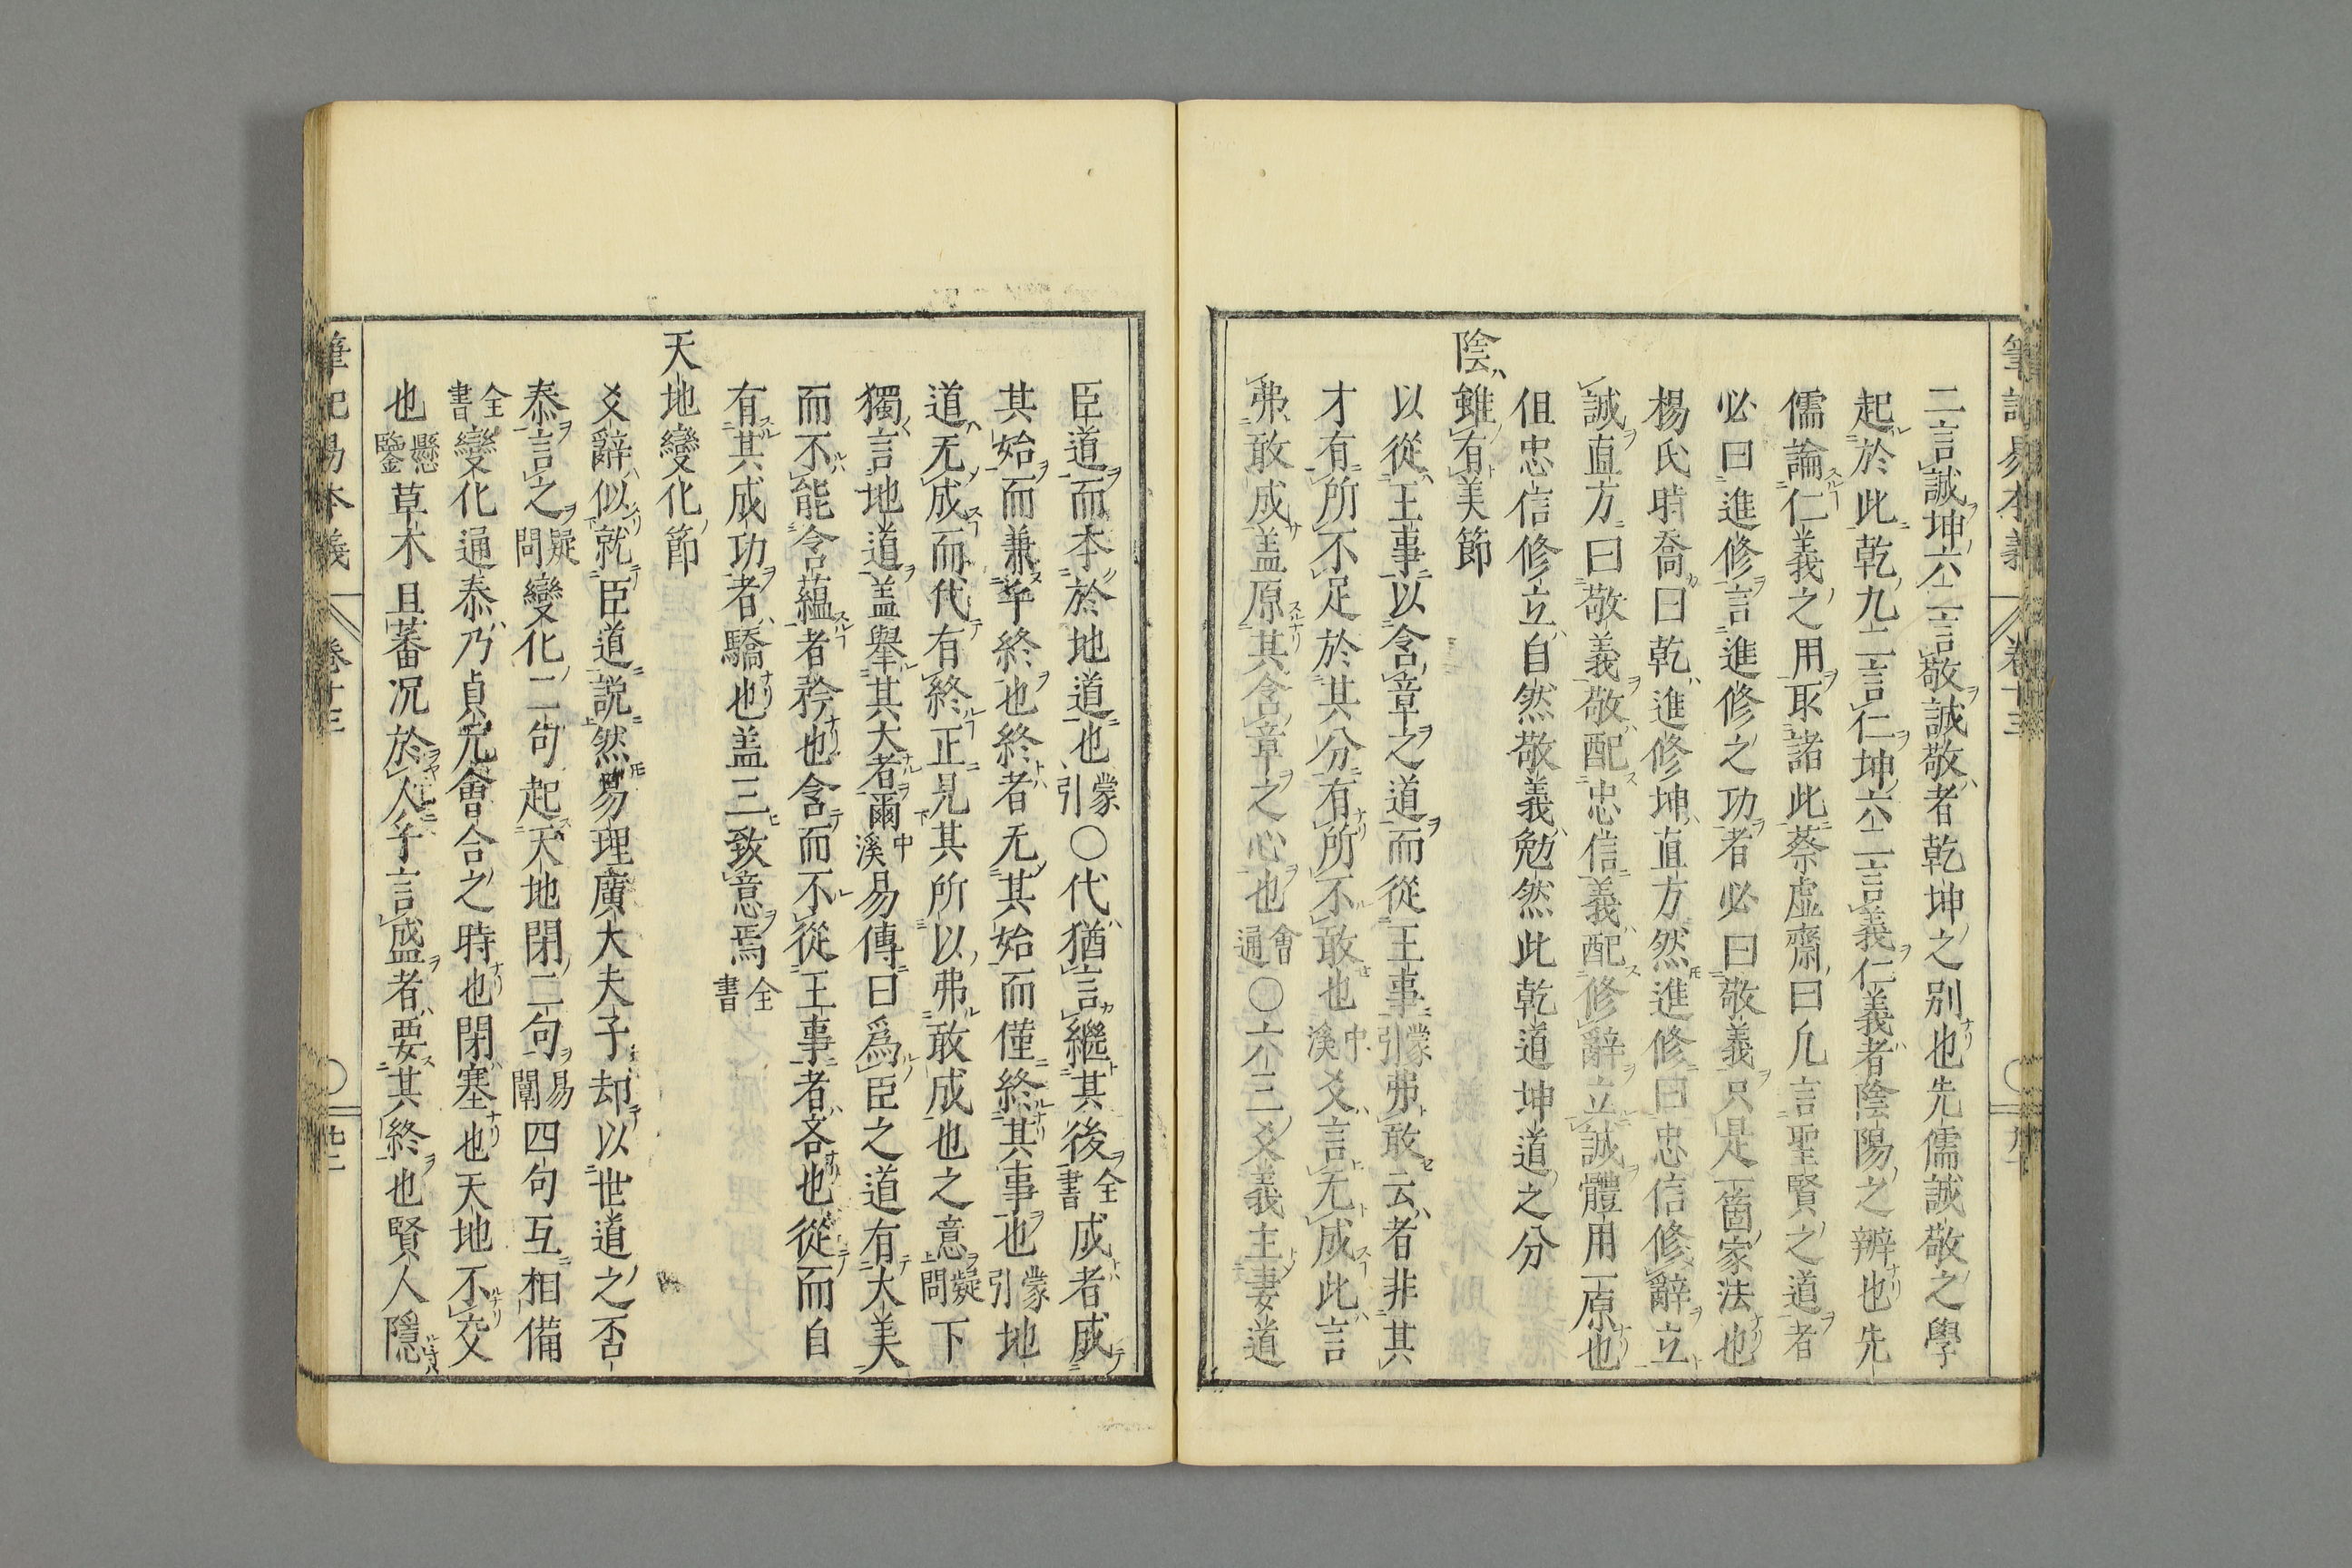 二言誠坤六二言敬誠敬者乾坤之別也先儒誠敬之學
起於此乾九二言仁坤六二言義仁義者陰陽之辨也先
儒論仁義之用取諸此蔡虛齋曰凡言聖賢之道者
必曰進修言進修之功者必曰敬義只是一箇家法也
楊氏時喬曰乾進修坤直方然進修曰忠信修辭立
誠直方曰敬義敬配忠信義配修辭立誠體用一原也
但忠信修立自然敬義勉然此乾道坤道之分
陰雖有美節
以從王事以含章之道而從王事蒙引弗敢云者非其
才有所不足於其分有所不敢也中溪爻言无成此言
弗敢成蓋原其含章之心也會通○六三爻義主妻道
臣道而本於地道也蒙引○代猶言繼其後全書成者成
其始而兼半終也終者无其始而僅終其事也蒙引地
道无成而代有終正見其所以弗敢成也之意疑問下
獨言地道蓋舉其大者爾中溪易傳曰爲臣之道有大美
而不能含蘊者矜也含而不從王事者吝也從而自
有其成功者驕也蓋三致意焉全書
天地變化節
爻辭似就臣道說然易理廣大夫子却以世道之否
泰言之疑問變化二句起天地閉二句易闡四句互相備
全書變化通泰乃貞元會合之時也閉塞也天地不交
也懸鑒草木且蕃况於人乎言盛者要其終也賢人隱
筆記易本義 卷十三